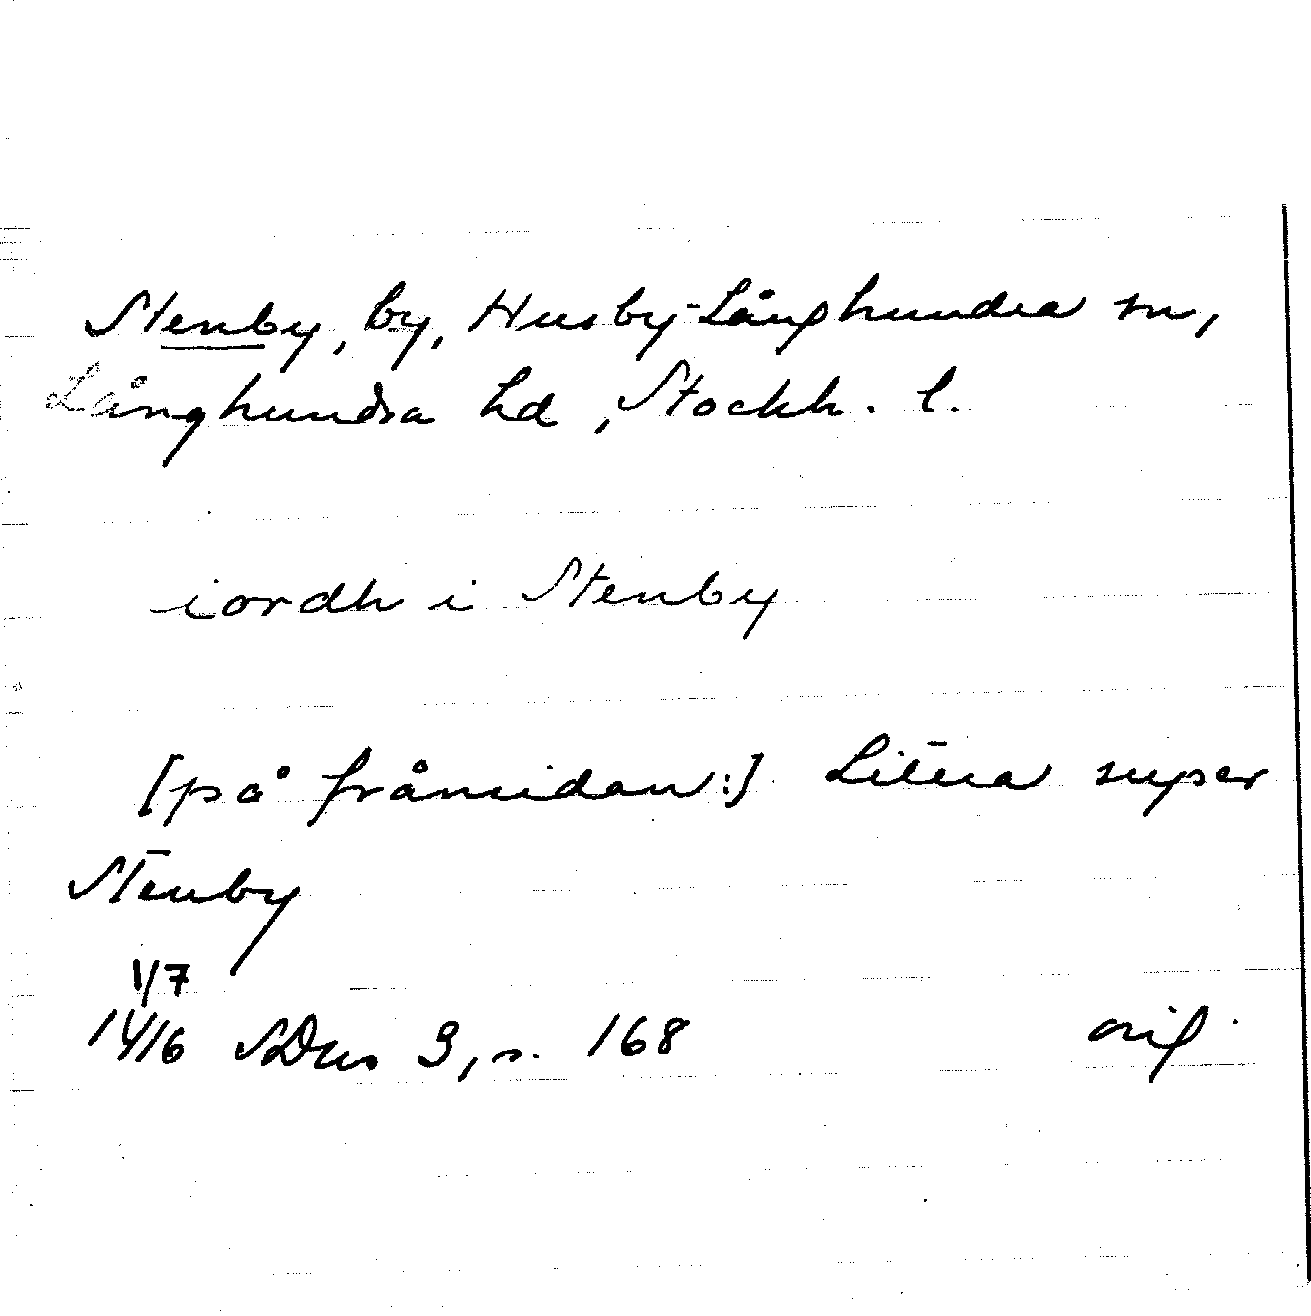 Stenby, by, Husby-Långhundra sn,
Långhundra hd, Stockh. l.
iordh i Stenby
[på frånsidan:] Litēra super
Stēnby
1/7
1416 SDns 3, s. 168 orig.